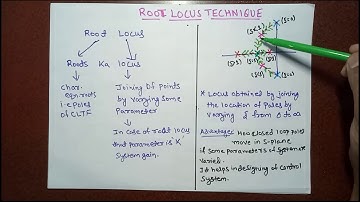 ROOT LOCUS TECHNIQUE
Root Locus
Roots Ka locus
Char-
eqn roots
i.e poles
of CLTF
Joining Of points
by varying some
Parameter
In case of root locus
that parameter is 'K'
System gain.
* Locus obtained by joining
the location of Poles by
varying δ from 0 to ∞
Advantage: How closed loop poles
move in S-plane
if some parameters of system are
varied.
It helps in designing of control
System.